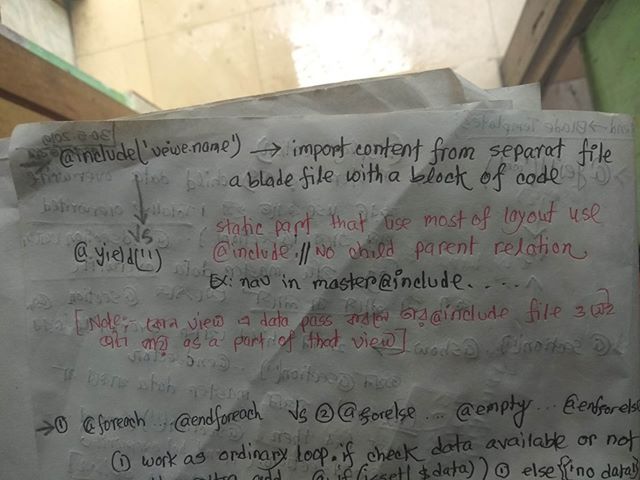 @include('veiwe.name') → import content from separat file
a blade file with a block of code
vs
static part that use most of layout use
@yield('') @include // No child parent relation
Ex: nav in master@include......
[Note:- কোন view এ data pass করলে তার @include file ও
as a part of that view]
→ ① @foreach ... @endforeach vs ② @forelse ... @empty ... @enforelse
① work as ordinary loop. if check data available or not
add @if(isset($data)) ① else{{'no data'